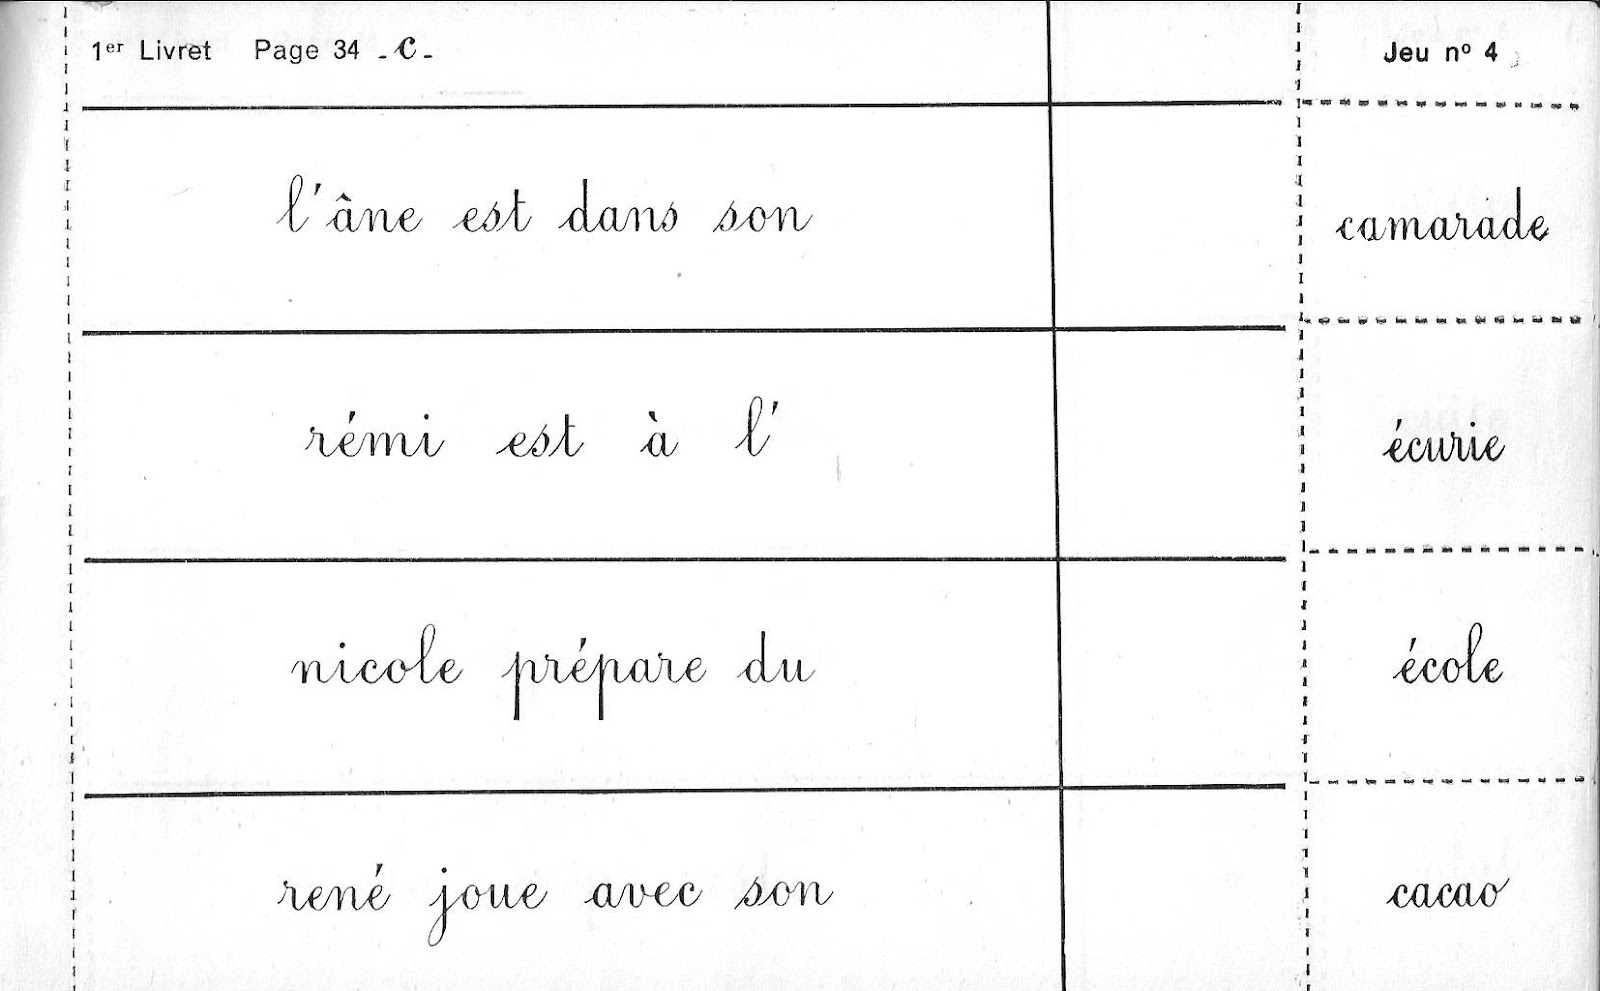 1er Livret Page 34 -c- Jeu nº 4
l'âne est dans son camarade
rémi est à l' écurie
nicole prépare du école
rené joue avec son cacao